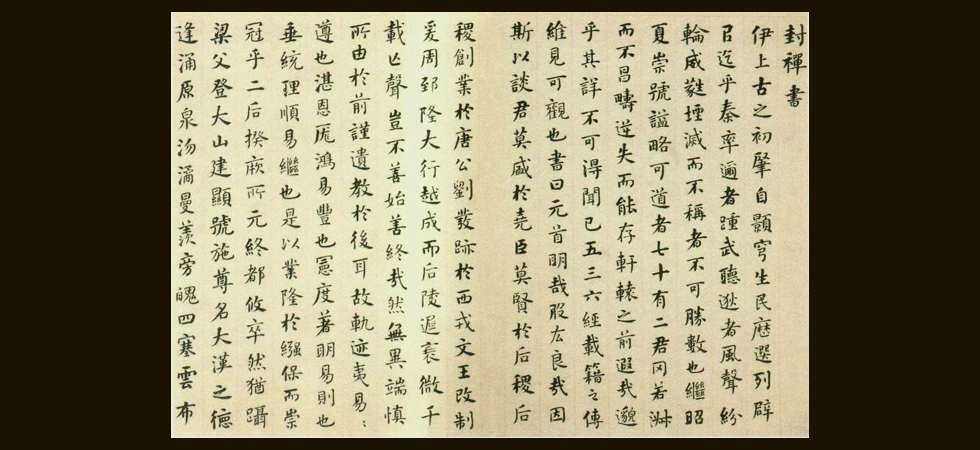 封禪書
伊上古之初肇自顥穹生民歷選列辟
㠯迄乎秦率邇者踵武聽逖者風聲紛
輪威蕤堙滅而不稱者不可勝數也繼昭
夏崇號諡略可道者七十有二君罔若淑
而不昌疇逆失而能存軒轅之前遐哉邈
乎其詳不可得聞已五三六經載籍之傳
維見可觀也書曰元首明哉股肱良哉因
斯以談君莫盛於堯臣莫賢於后稷后
稷創業於唐公劉發跡於西戎文王改制
爰周郅隆大行越成而后陵遲衰微千
載亡聲豈不善始善終哉然無異端慎
所由於前謹遺教於後耳故軌迹夷易〻
遵也湛恩厖鴻易豐也憲度著明易則也
垂統理順易繼也是以業隆於繦保而崇
冠乎二后揆厥所元終都攸卒然猶躡
梁父登大山建顯號施尊名大漢之德
逢涌原泉沕潏曼羨旁魄四塞雲布